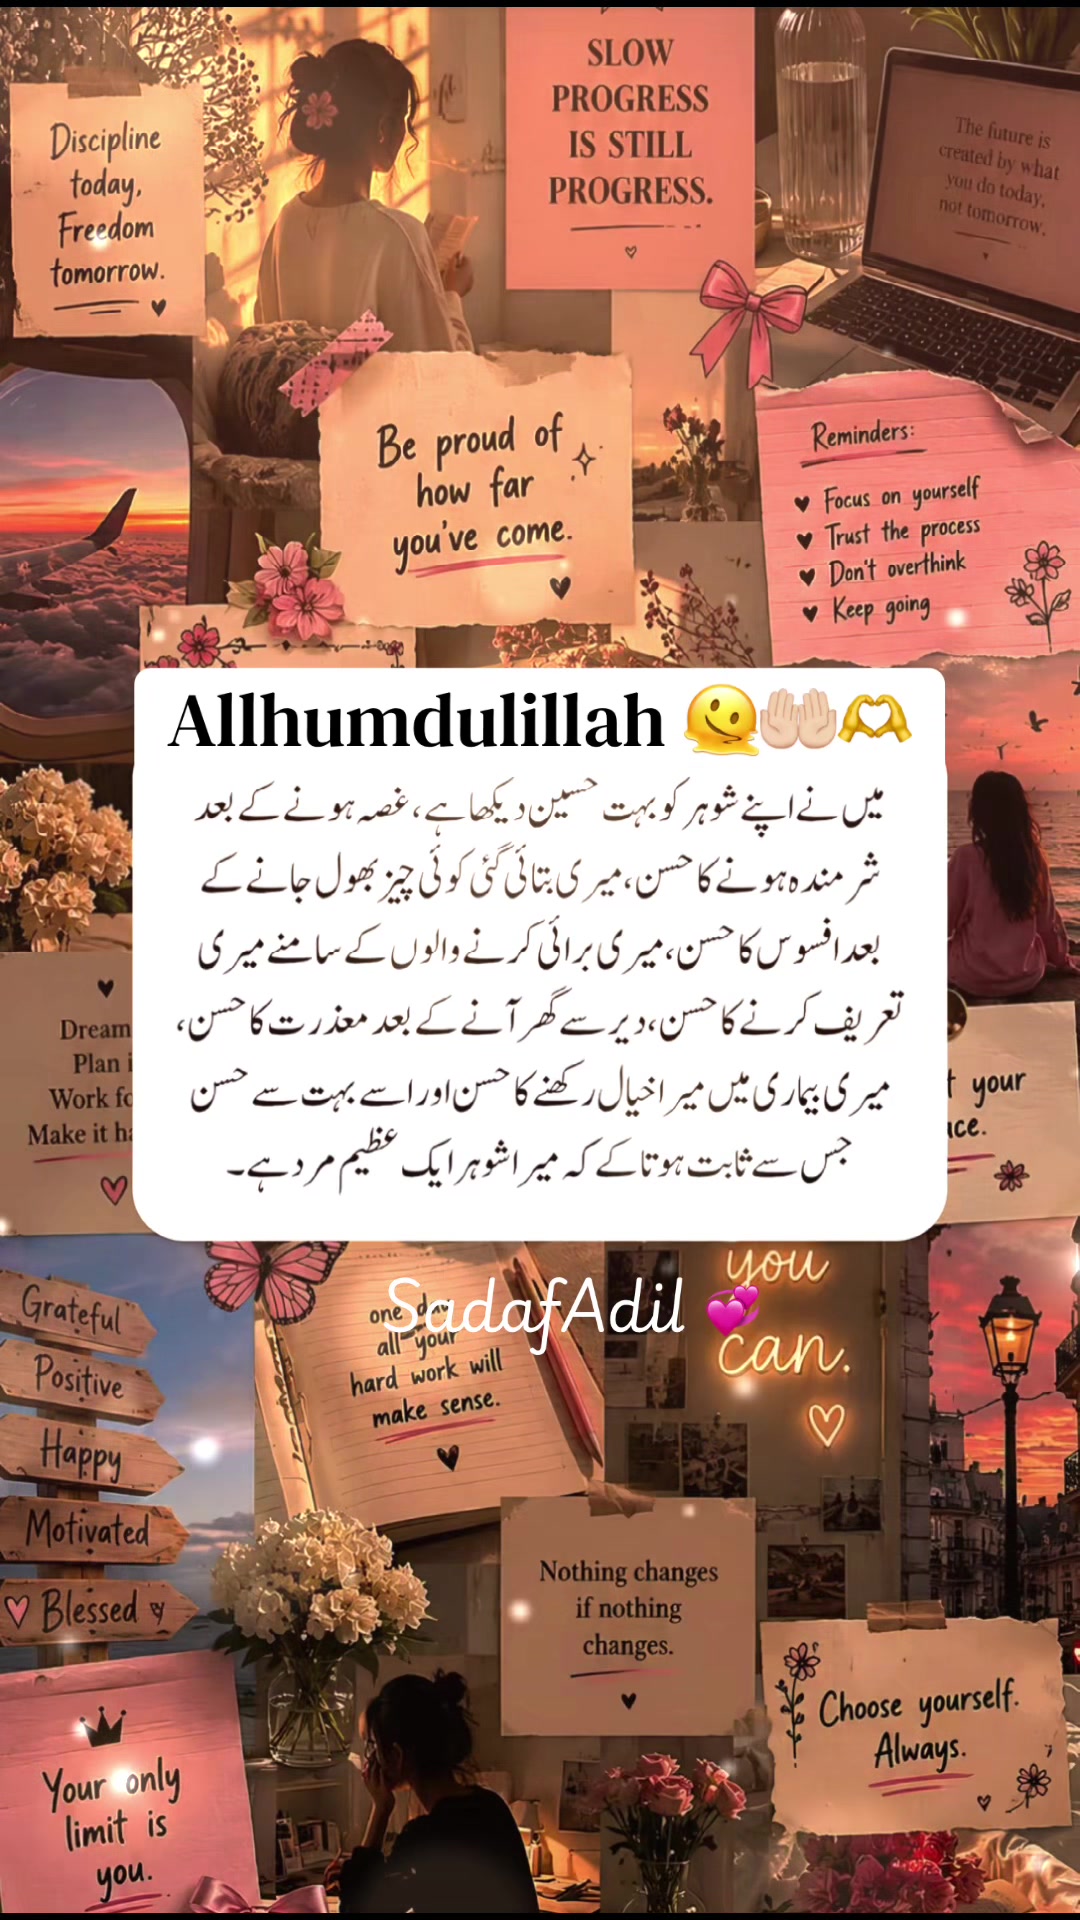 Discipline
today,
Freedom
tomorrow.
SLOW
PROGRESS
IS STILL
PROGRESS.
The future is
created by what
you do today,
not tomorrow.
Be proud of
how far
you've come.
Reminders:
Focus on yourself
Trust the process
Don't overthink
Keep going
Allhumdulillah 🫠🤲🏻🫶
میں نے اپنے شوہر کو بہت حسین دیکھا ہے، غصہ ہونے کے بعد
شرمندہ ہونے کا حسن، میری بتائی گئی کوئی چیز بھول جانے کے
بعد افسوس کا حسن، میری برائی کرنے والوں کے سامنے میری
تعریف کرنے کا حسن، دیر سے گھر آنے کے بعد معذرت کا حسن،
میری بیماری میں میرا خیال رکھنے کا حسن اور اسے بہت سے حسن
جس سے ثابت ہوتا کے کہ میرا شوہر ایک عظیم مرد ہے۔
Dream
Plan
Work
Make it
your
SadafAdil 💞
Grateful
Positive
Happy
Motivated
Blessed
one day
all your
hard work will
make sense.
you
can.
Nothing changes
if nothing
changes.
Choose yourself.
Always.
Your only
limit is
you.